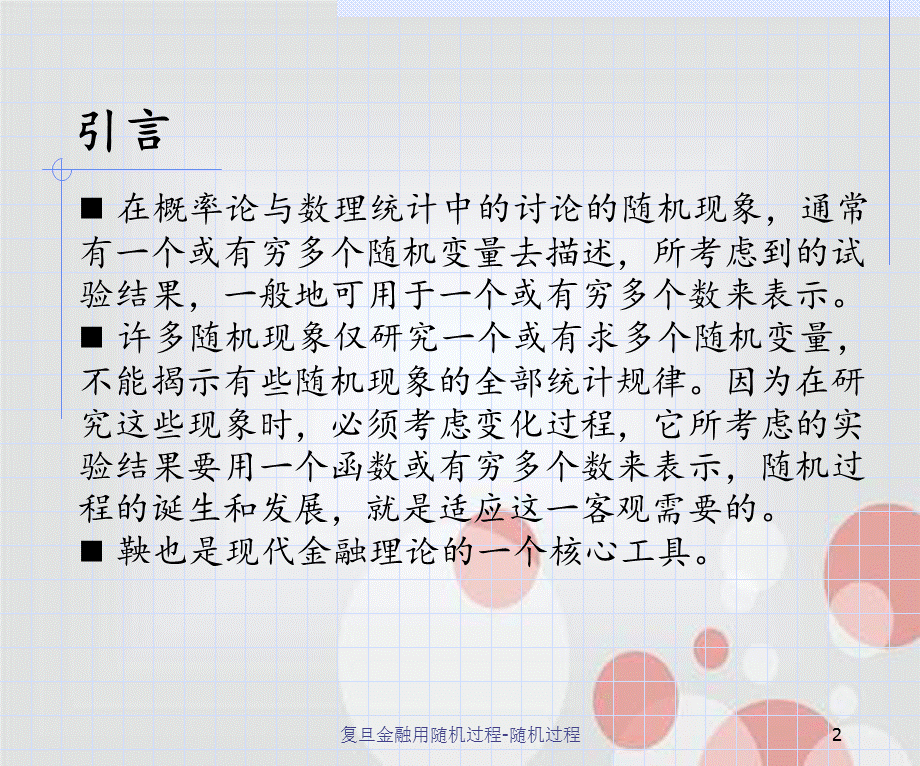 引言
■ 在概率论与数理统计中的讨论的随机现象，通常
有一个或有穷多个随机变量去描述，所考虑到的试
验结果，一般地可用于一个或有穷多个数来表示。
■ 许多随机现象仅研究一个或有求多个随机变量，
不能揭示有些随机现象的全部统计规律。因为在研
究这些现象时，必须考虑变化过程，它所考虑的实
验结果要用一个函数或有穷多个数来表示，随机过
程的诞生和发展，就是适应这一客观需要的。
■ 鞅也是现代金融理论的一个核心工具。
复旦金融用随机过程-随机过程
2